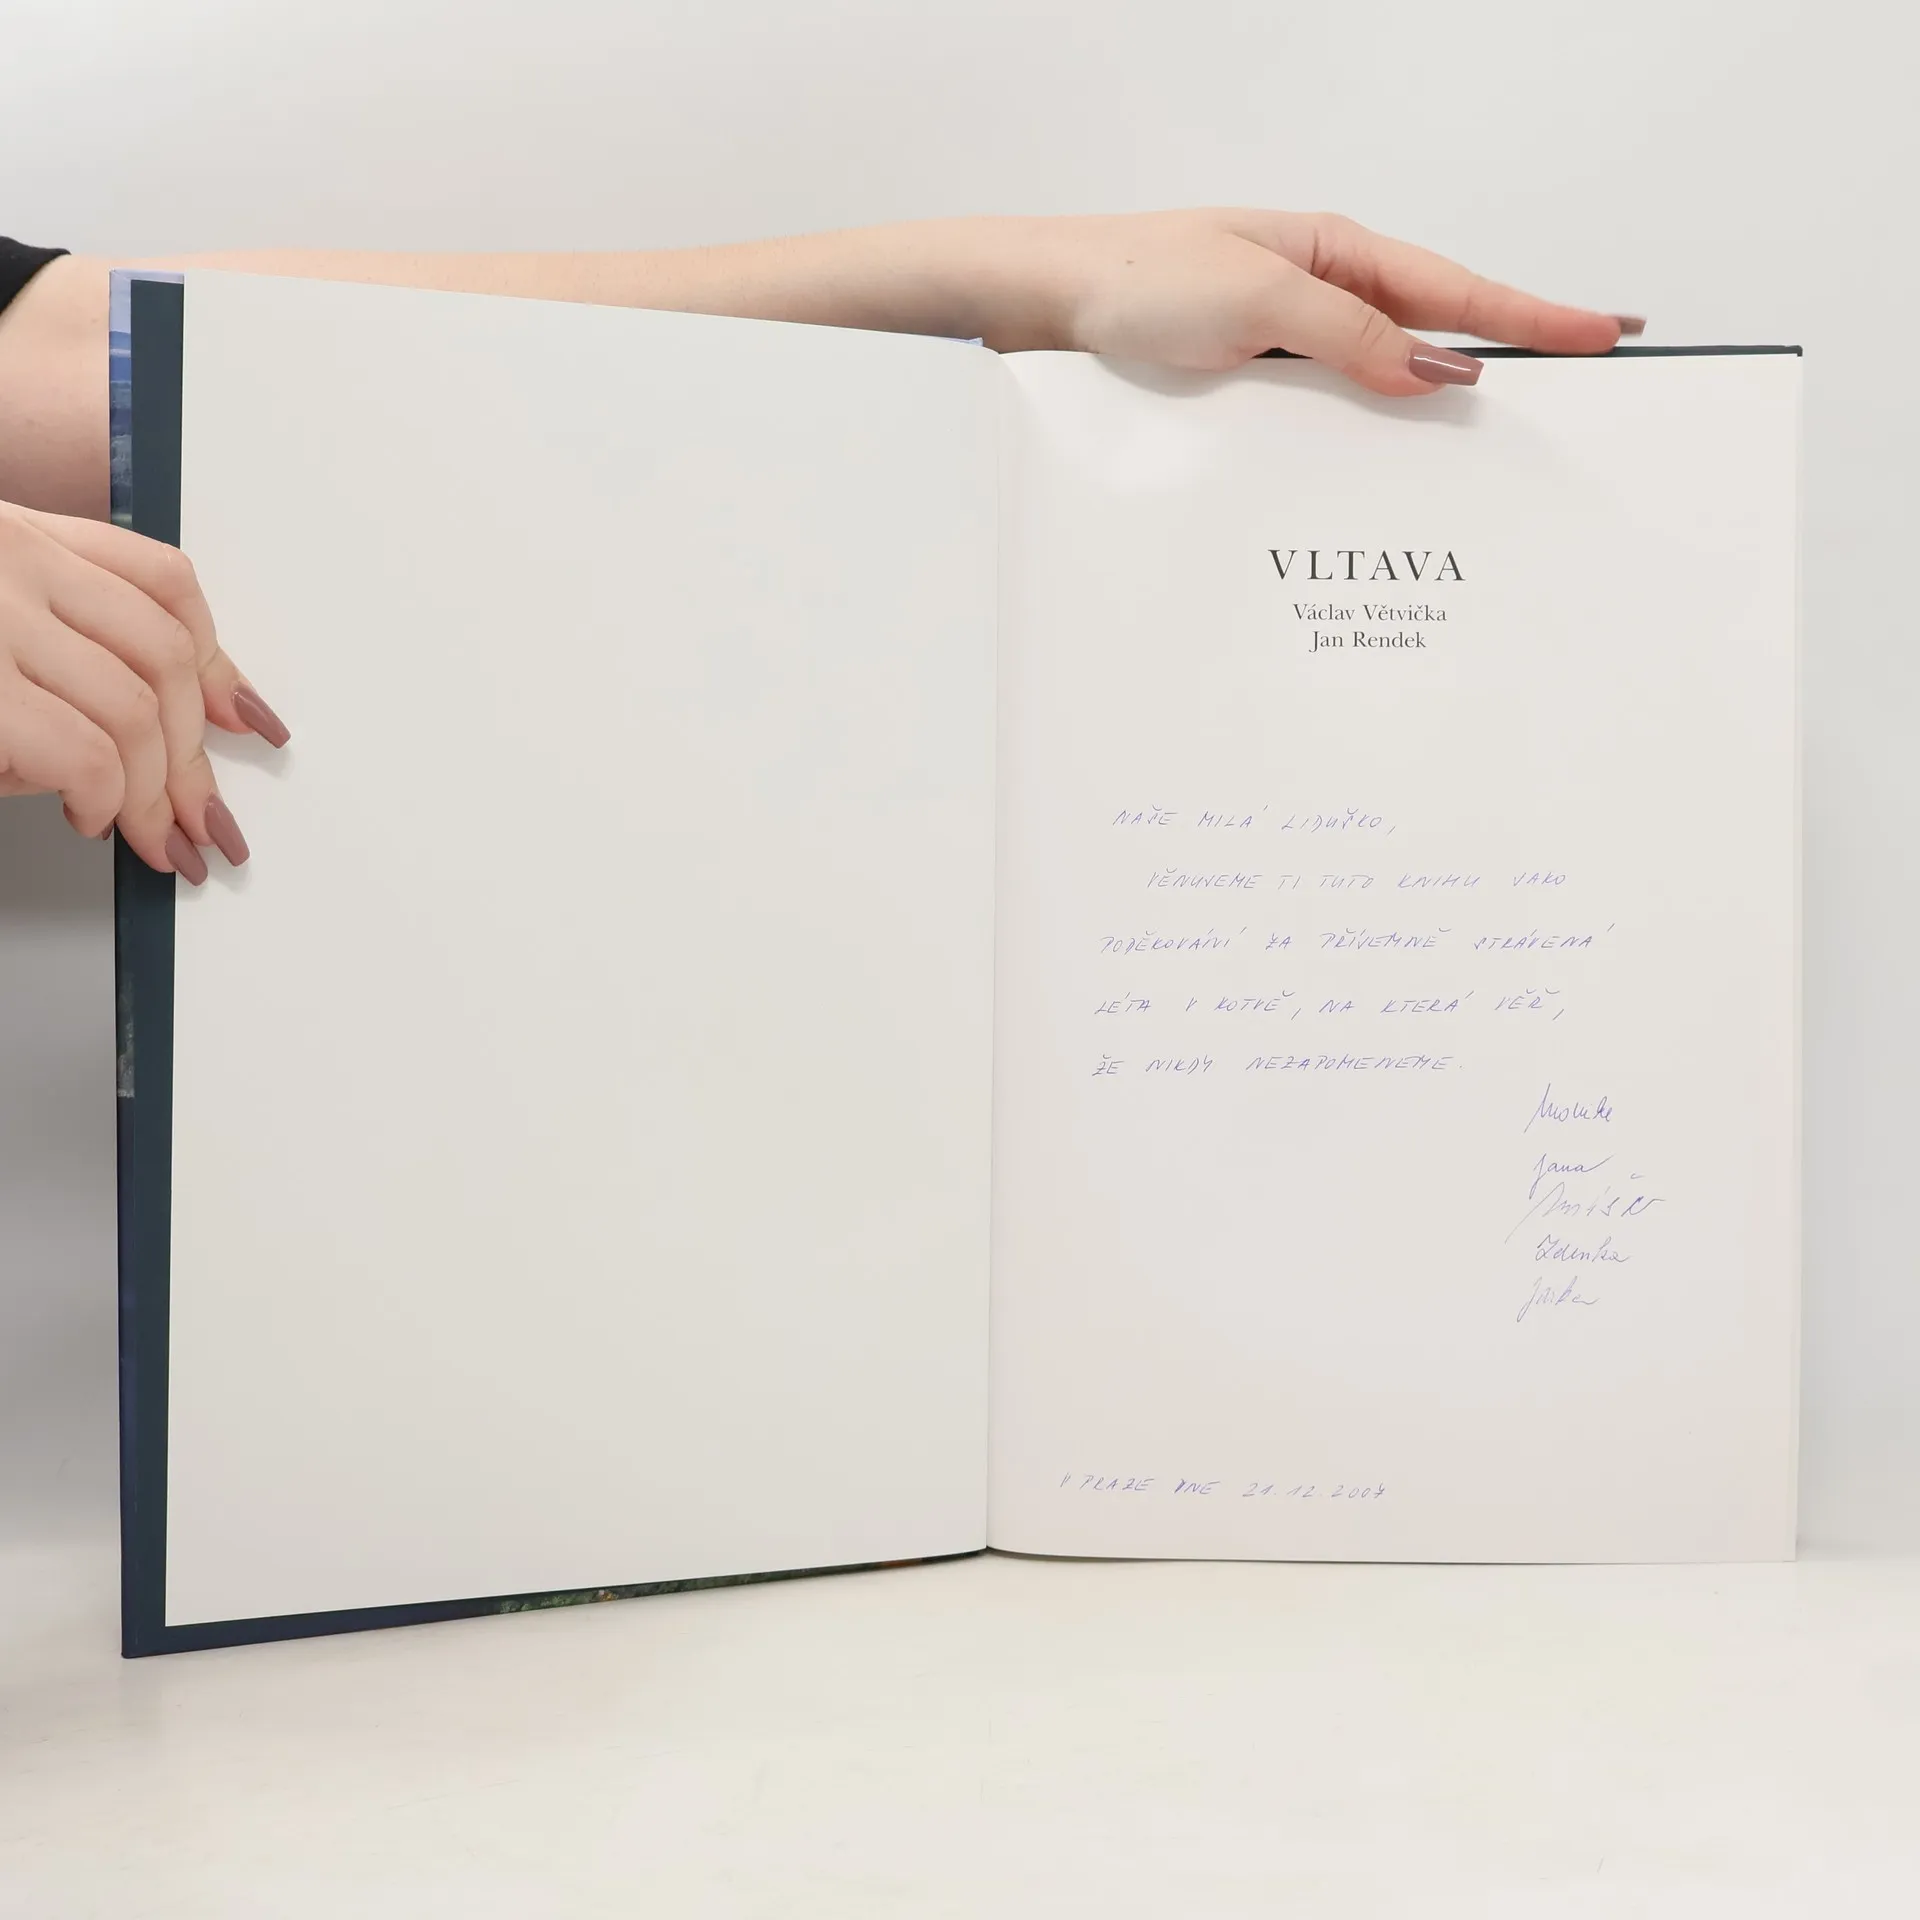 VLTAVA
Václav Větvička
Jan Rendek
NAŠE MILÁ LIDUŠKO,
VĚNUJEME TI TUTO KNIHU JAKO
PODĚKOVÁNÍ ZA PŘÍJEMNĚ STRÁVENÁ
LÉTA V KOTVĚ, NA KTERÁ VĚŘ,
ŽE NIKDY NEZAPOMENEME.
Monika
Jana
Zdenka
Jirka
V PRAZE DNE 21.12.2007